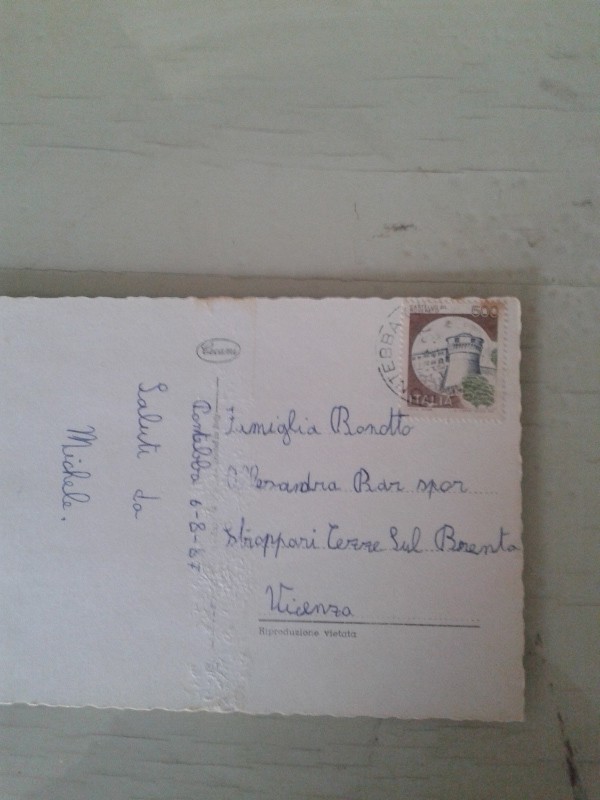 Saluti da
Michele.
Pontebba 6-8-87
Famiglia Bonotto
Alessandra Bar spor
Stroppari Tezze Sul Brenta
Vicenza
Riproduzione vietata
500
ITALIA
TEBBA